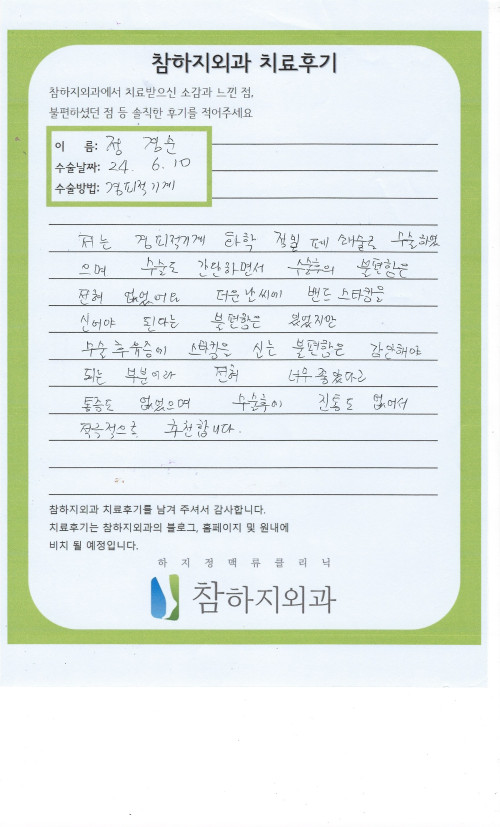 참하지외과 치료후기
참하지외과에서 치료받으신 소감과 느낀 점,
불편하셨던 점 등 솔직한 후기를 적어주세요
이 름: 정 경순
수술날짜: 24. 6. 10
수술방법: 경피적기계
저는 경피적기계 화학 정밀 폐쇄술로 수술하였
으며 수술도 간단하면서 수술후의 불편함은
전혀 없었어요 더운 날씨에 밴드 스타킹을
신어야 된다는 불편함은 있었지만
수술 후유증이 스타킹을 신는 불편함은 감안해야
되는 부분이라 전혀 너무 좋았다고
통증도 없었으며 수술후에 진통도 없어서
적극적으로 추천합니다.
참하지외과 치료후기를 남겨 주셔서 감사합니다.
치료후기는 참하지외과의 블로그, 홈페이지 및 원내에
비치 될 예정입니다.
하지정맥류클리닉
참하지외과